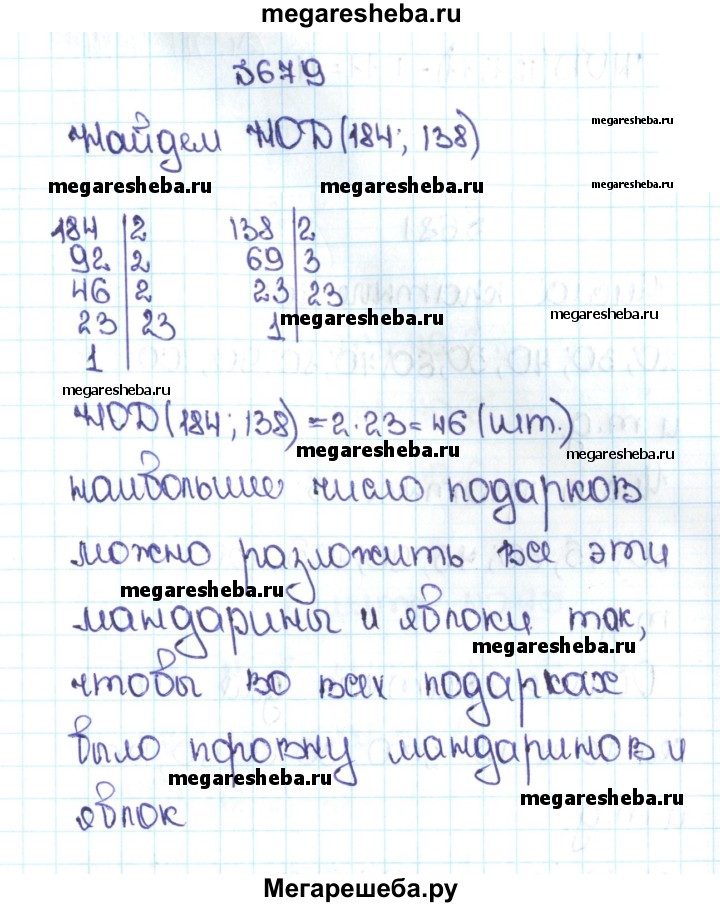 megaresheba.ru
№679
Найдем НОД(184; 138)
megaresheba.ru
megaresheba.ru megaresheba.ru megaresheba.ru
184 | 2 138 | 2
92 | 2 69 | 3
46 | 2 23 | 23
23 | 23 1 | megaresheba.ru
1 |
megaresheba.ru
НОД(184; 138) = 2·23 = 46 (шт.)
megaresheba.ru megaresheba.ru
наибольшие число подарков
можно разложить все эти
megaresheba.ru
мандарины и яблоки так,
megaresheba.ru
чтобы во всех подарках
было поровну мандаринов и
megaresheba.ru
megaresheba.ru
яблок
Мегарешеба.ру